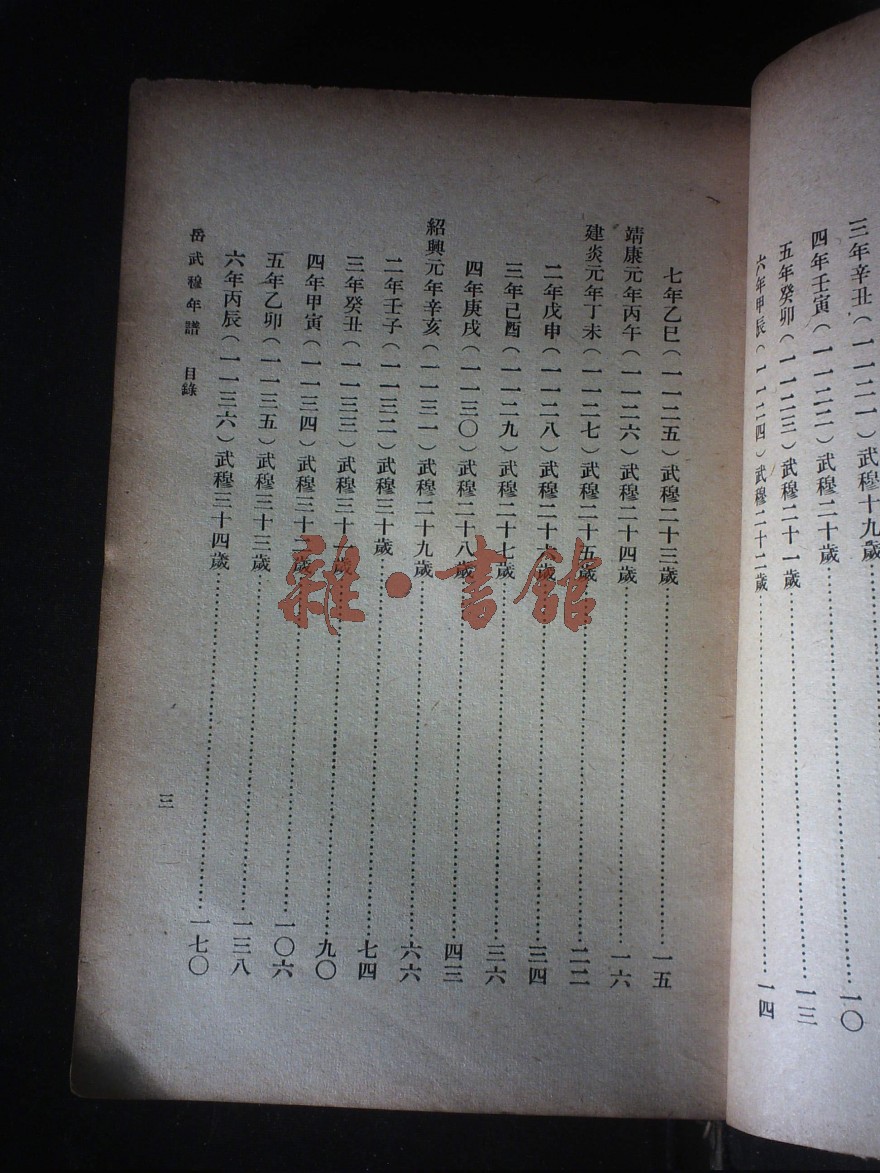 三年辛丑(一一二一)武穆十九歲……一〇
四年壬寅(一一二二)武穆二十歲
五年癸卯(一一二三)武穆二十一歲……一三
六年甲辰(一一二四)武穆二十二歲……一四
七年乙巳(一一二五)武穆二十三歲……一五
靖康元年丙午(一一二六)武穆二十四歲……一六
建炎元年丁未(一一二七)武穆二十五歲……二二
二年戊申(一一二八)武穆二十六歲……三四
三年己酉(一一二九)武穆二十七歲……三六
四年庚戌(一一三〇)武穆二十八歲……四三
紹興元年辛亥(一一三一)武穆二十九歲……六六
二年壬子(一一三二)武穆三十歲……七四
三年癸丑(一一三三)武穆三十一歲……九〇
四年甲寅(一一三四)武穆三十二歲……一〇六
五年乙卯(一一三五)武穆三十三歲……一三八
六年丙辰(一一三六)武穆三十四歲……一七〇
岳武穆年譜 目錄
三
雜·書館